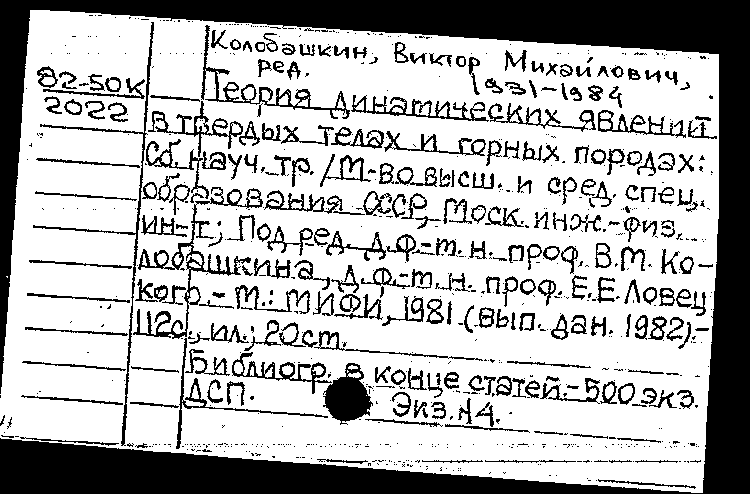 Колобашкин, Виктор Михайлович,
ред. 1931-1984
82-50К
2022
Теория динатических явлений
в твердых телах и горных породах:
Сб. науч. тр. / М-во высш. и сред. спец.
образования СССР, Моск. инж.-физ.
ин-т; Под ред. д.ф.-т.н. проф. В.М. Ко-
лобашкина, д.ф.-т.н. проф. Е.Е. Ловец
кого. - М.: МИФИ, 1981 (вып. дан. 1982).-
112с., ил.; 20ст.
Библиогр. в конце статей.-500 экз.
ДСП. Экз. №4.